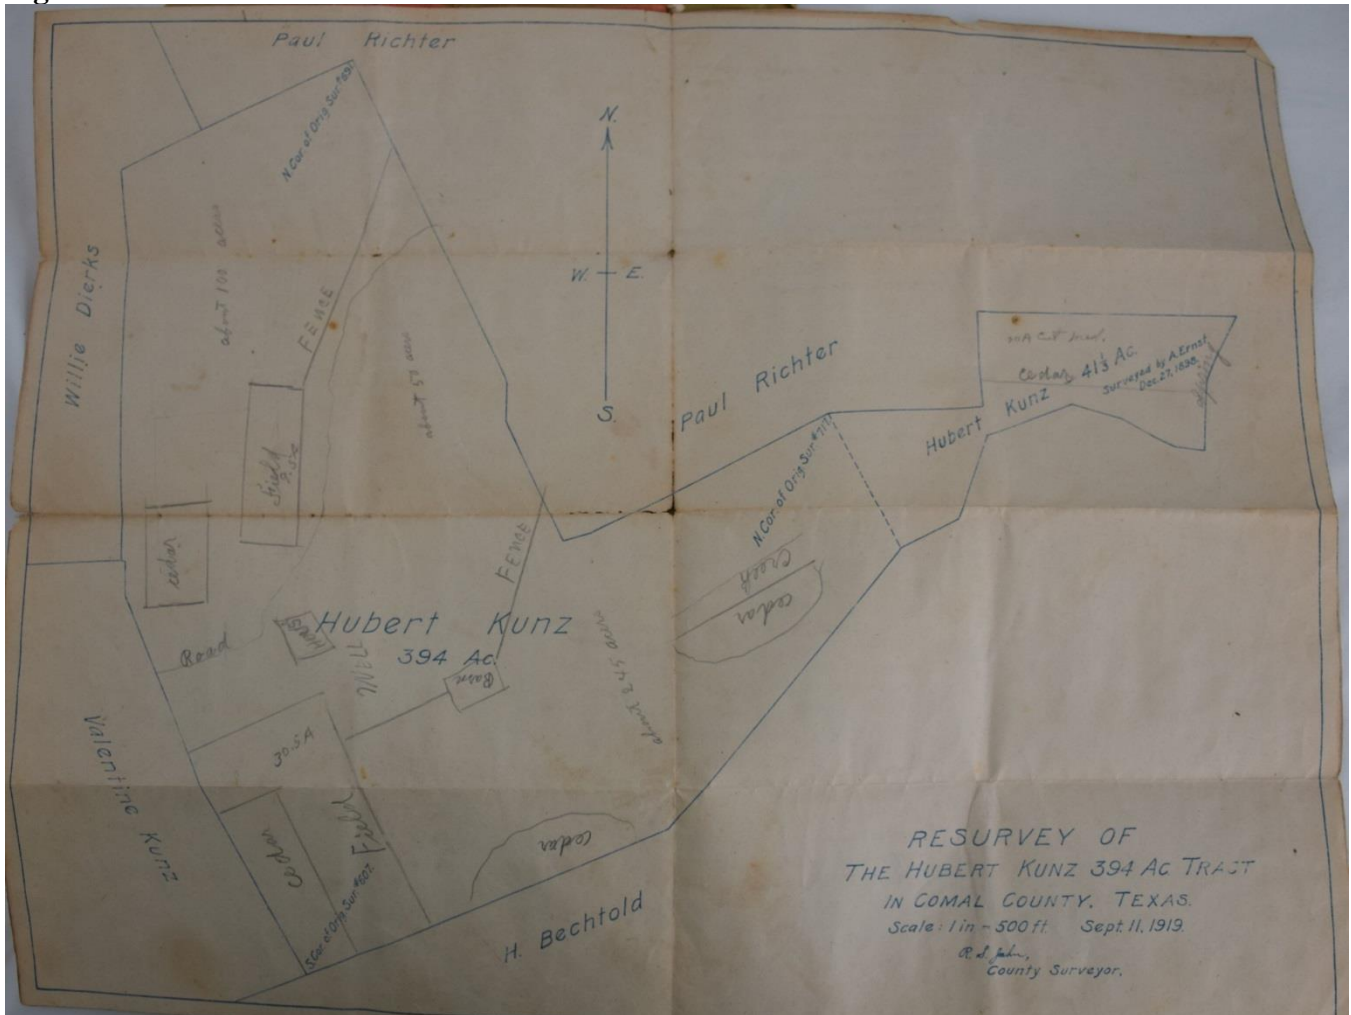 Paul Richter
N. Cor. of Orig. Sur.
N.
W. E.
S.
Willie Dierks
about 100 acres
FENCE
about 50 acres
Field
cedar
Paul Richter
N. Cor. of Orig. Sur.
Cedar 41⅓ Ac.
Surveyed by A. Ernst
Dec. 27, 1898.
Hubert Kunz
FENCE
Creek
cedar
Hubert Kunz
394 Ac.
House
WELL
Road
Barn
about 245 acres
30.5 A
Valentine Kunz
Cedar
Field
cedar
S. Cor. of Orig. Sur.
H. Bechtold
RESURVEY OF
THE HUBERT KUNZ 394 AC TRACT
IN COMAL COUNTY, TEXAS.
Scale: 1 in - 500 ft. Sept. 11, 1919.
R. S. Jahn,
County Surveyor.